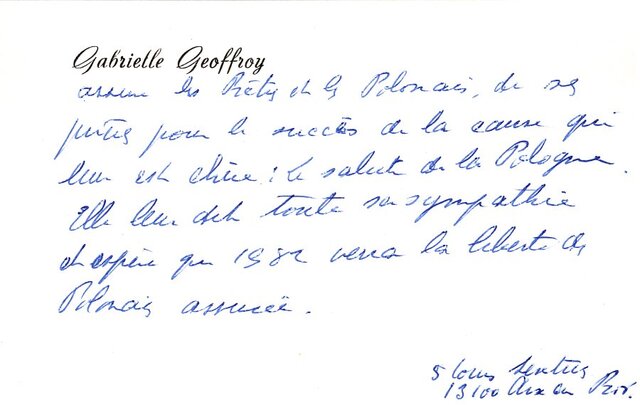 Gabrielle Geoffroy
assure les Prêtres et les Polonais, de ses
prières pour le succès de la cause qui
leur est chère : le salut de la Pologne.
Elle leur dit toute sa sympathie
et espère que 1982 verra la liberté des
Polonais assurée.
5 Cours Sextius
13100 Aix en Prov.